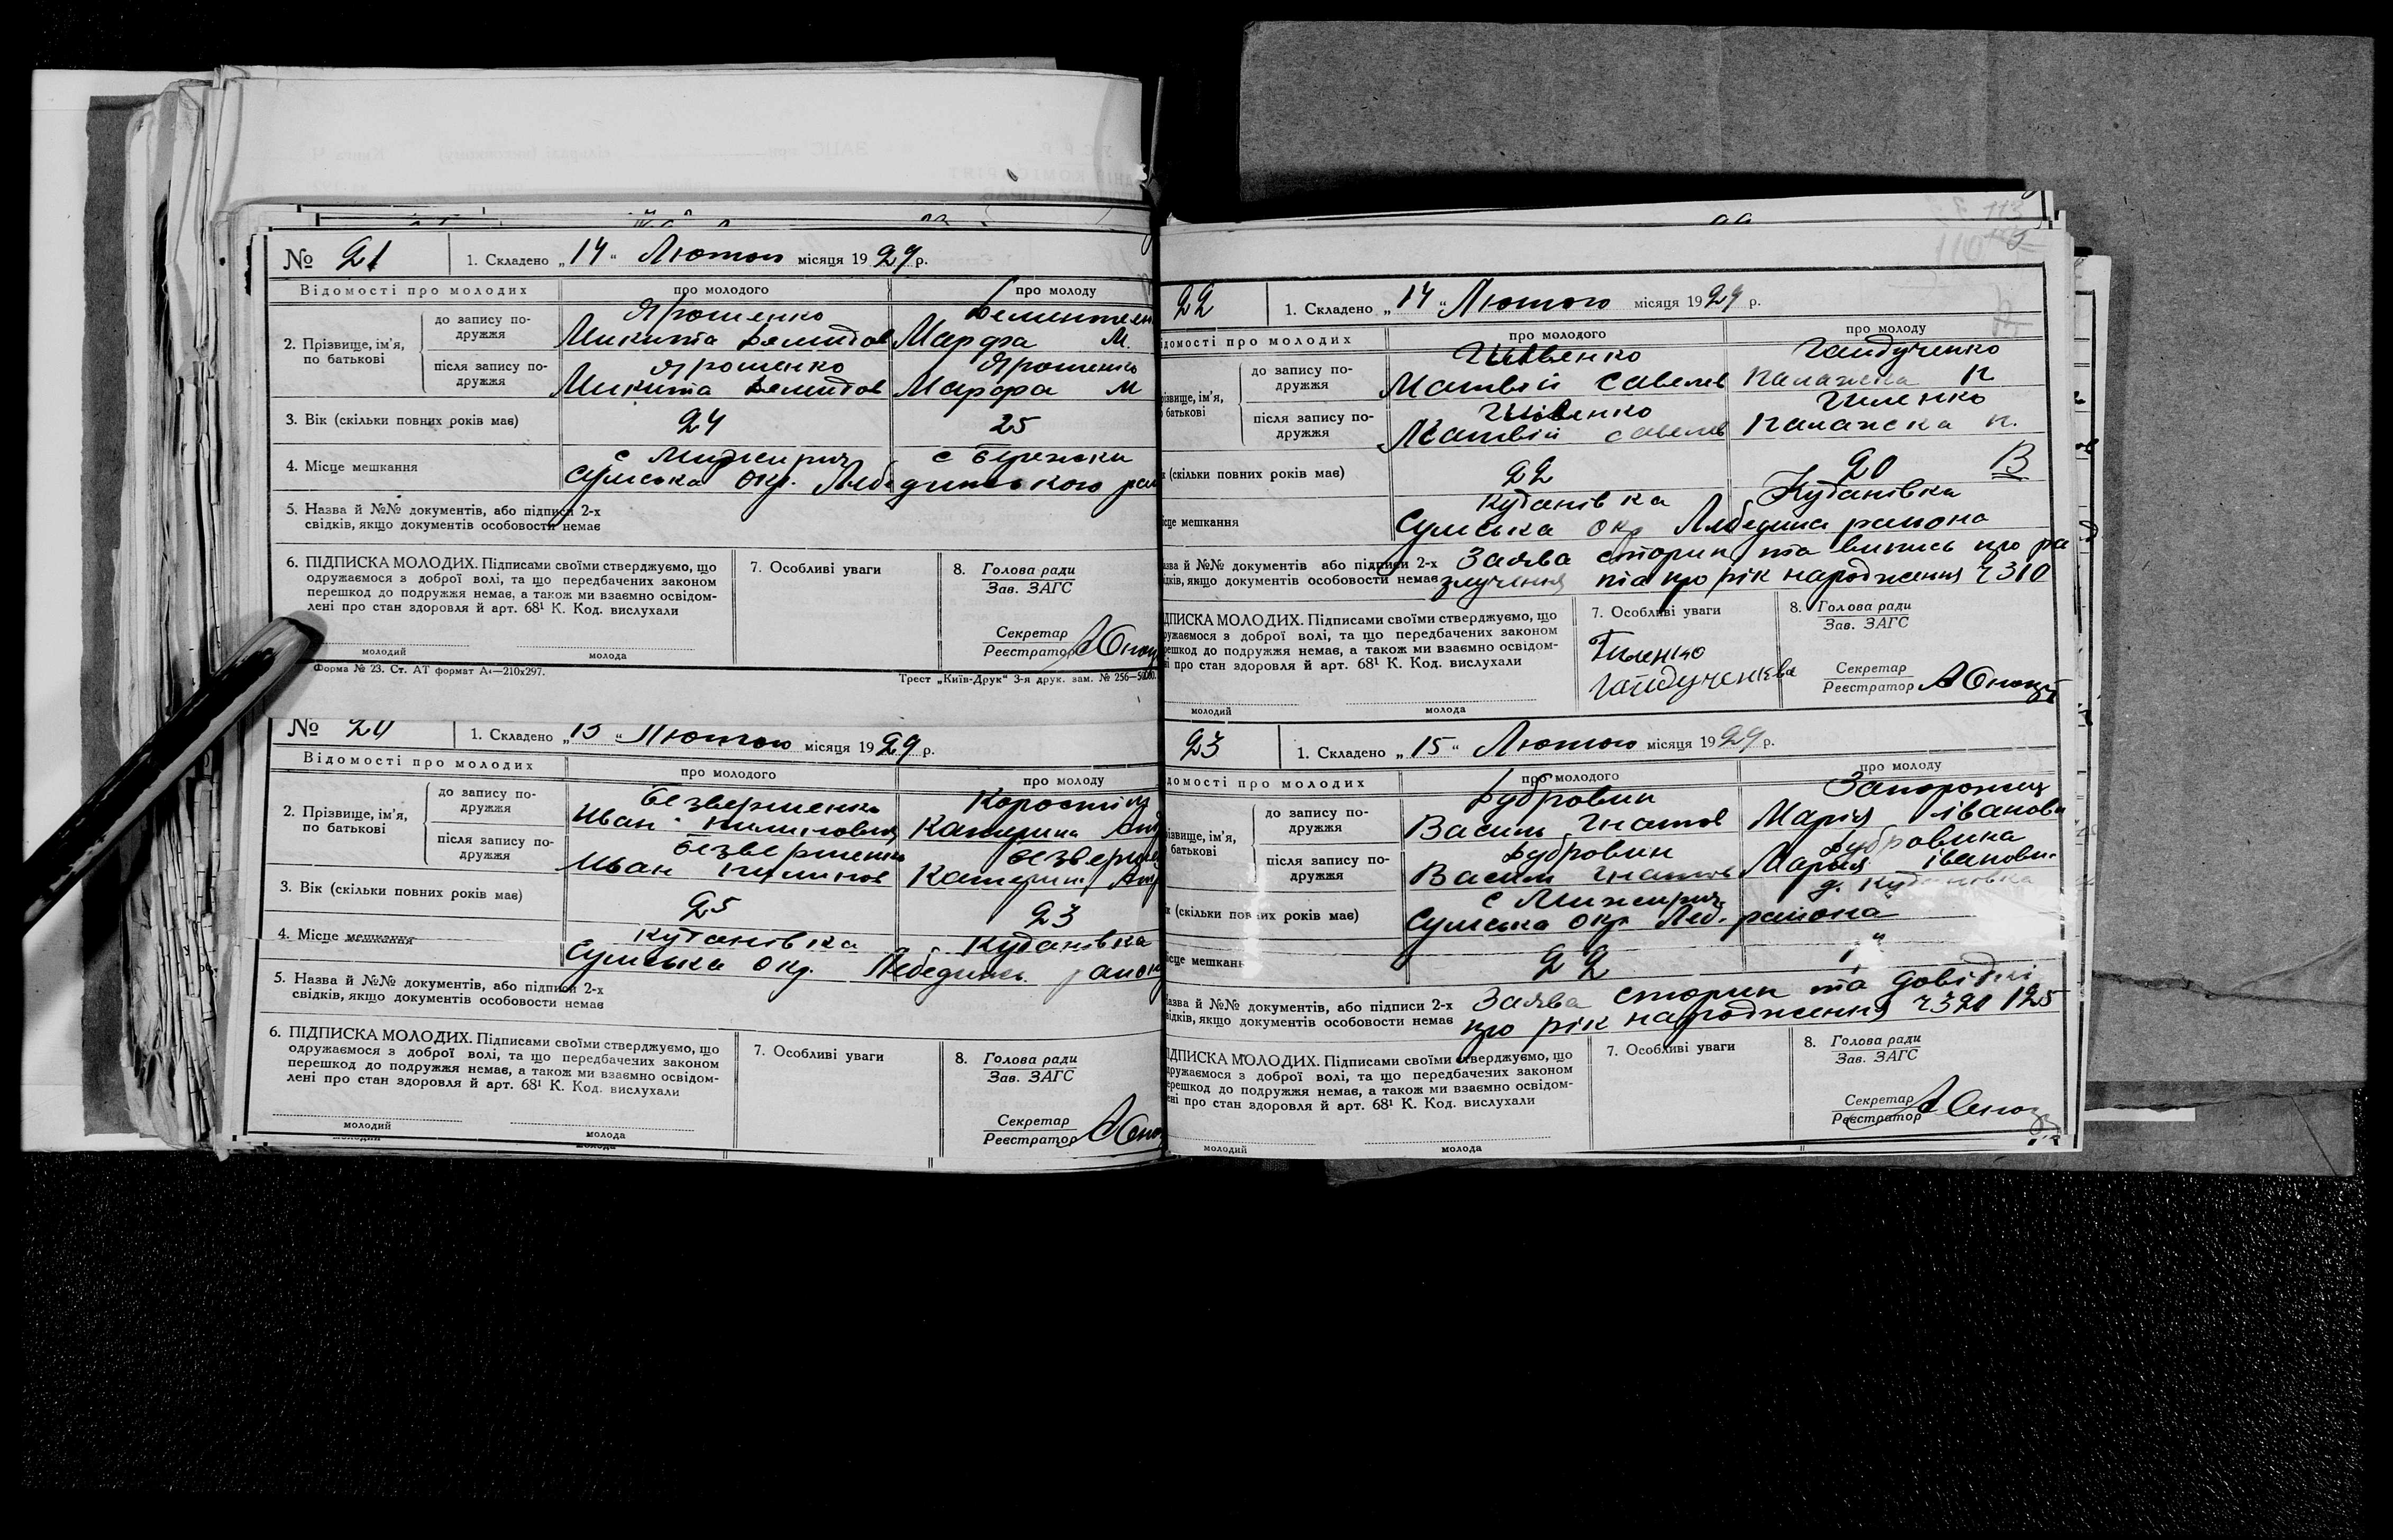 № 21
1. Складено „14“ Лютого місяця 1929 р.
Відомості про молодих
про молодого
про молоду
2. Прізвище, ім'я, по батькові
до запису подружжя
Ярошенко
Микита Демидов
Марфа М.
після запису подружжя
Ярошенко
Ярошенко
Микита Демидов
Марфа М
3. Вік (скільки повних років має)
24
25
4. Місце мешкання
с Межирич
с Бережки
Сумська Окр. Лебединського рай
5. Назва й №№ документів, або підписи 2-х
свідків, якщо документів особовости немає
6. ПІДПИСКА МОЛОДИХ. Підписами своїми стверджуємо, що
одружаємося з доброї волі, та що передбачених законом
перешкод до подружжя немає, а також ми взаємно освідом-
лені про стан здоровля й арт. 68¹ К. Код. вислухали
молодий
молода
7. Особливі уваги
8. Голова ради
Зав. ЗАГС
Секретар
Реєстратор
Форма № 23. Ст. АТ формат А₄—210х297.
Трест „Київ-Друк“ 3-я друк. зам. № 256—50000.
№ 20
1. Складено „13“ Лютого місяця 1929 р.
Відомості про молодих
про молодого
про молоду
2. Прізвище, ім'я,
по батькові
до запису по-
дружжя
Безвершенко
Иван
Катерина
після запису по-
дружжя
Безвершенко
Иван
Катерина
3. Вік (скільки повних років має)
25
23
4. Місце мешкання
Кутанівка
Кутанівка
Сумська Окр. Лебединсь. району
5. Назва й №№ документів, або підписи 2-х
свідків, якщо документів особовости немає
6. ПІДПИСКА МОЛОДИХ. Підписами своїми стверджуємо, що
одружаємося з доброї волі, та що передбачених законом
перешкод до подружжя немає, а також ми взаємно освідом-
лені про стан здоровля й арт. 68¹ К. Код. вислухали
молодий
молода
7. Особливі уваги
8. Голова ради
Зав. ЗАГС
Секретар
Реєстратор
22
1. Складено „14“ Лютого місяця 1929 р.
ідомості про молодих
про молодого
про молоду
різвище, ім'я,
батькові
до запису по-
дружжя
Гайдученко
Матвій Савелів
Палажка П
після запису по-
дружжя
Гиленко
Матвій Савелів
Палажка П.
к (скільки повних років має)
22
20
В
ісце мешкання
Кутанівка
Кутанівка
Сумська Окр Лебедина района
зва й №№ документів або підписи 2-х
ідків, якщо документів особовости немає
Заява сторін та випись про ра
злучення та про рік народження ч 310
ДПИСКА МОЛОДИХ. Підписами своїми стверджуємо, що
ружаємося з доброї волі, та що передбачених законом
решкод до подружжя немає, а також ми взаємно освідом-
і про стан здоровля й арт. 68¹ К. Код. вислухали
молодий
молода
7. Особливі уваги
Гиленко
8. Голова ради
Зав. ЗАГС
Секретар
Реєстратор
23
1. Складено „15“ Лютого місяця 1929 р.
домості про молодих
про молодого
про молоду
різвище, ім'я,
батькові
до запису по-
дружжя
Дубровин
Василь Гнатов
Марія Іванови
після запису по-
дружжя
Дубровин
Дубровина
Василь Гнатов
Марія Іванови.
к (скільки повних років має)
с Межирич
Сумська Окр Леб. района
ісце мешкан
22
азва й №№ документів, або підписи 2-х
відків, якщо документів особовости немає
Заява сторін та довідки
про рік народження ч 320 125
ІДПИСКА МОЛОДИХ. Підписами своїми стверджуємо, що
дружаємося з доброї волі, та що передбачених законом
ерешкод до подружжя немає, а також ми взаємно освідом-
ені про стан здоровля й арт. 68¹ К. Код. вислухали
молодий
молода
7. Особливі уваги
8. Голова ради
Зав. ЗАГС
Секретар
Реєстратор